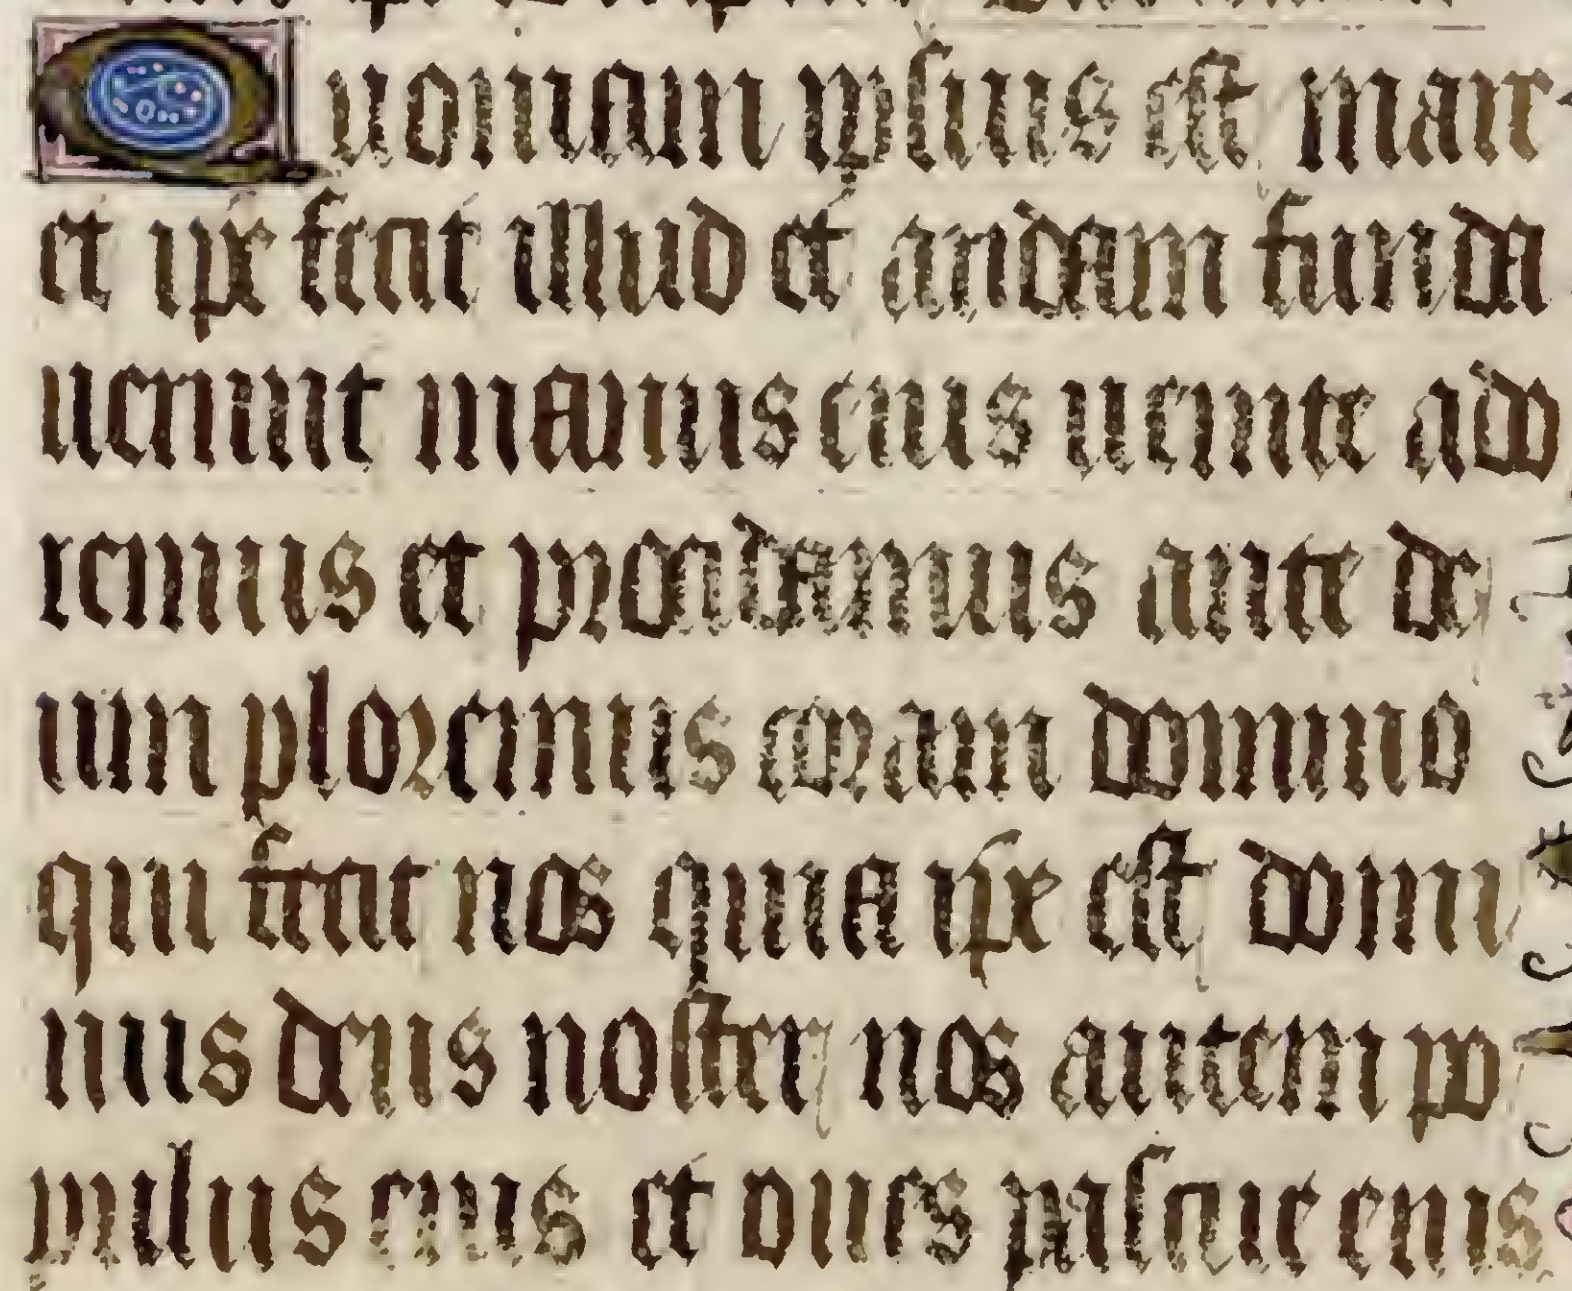 Quoniam ipsius est mare
et ipse fecit illud et aridam funda
uerunt manus eius uenite ado
remus et procidamus ante de
um ploremus coram domino
qui fecit nos quia ipse est domi
nus deus noster nos autem po
pulus eius et oues pascue eius